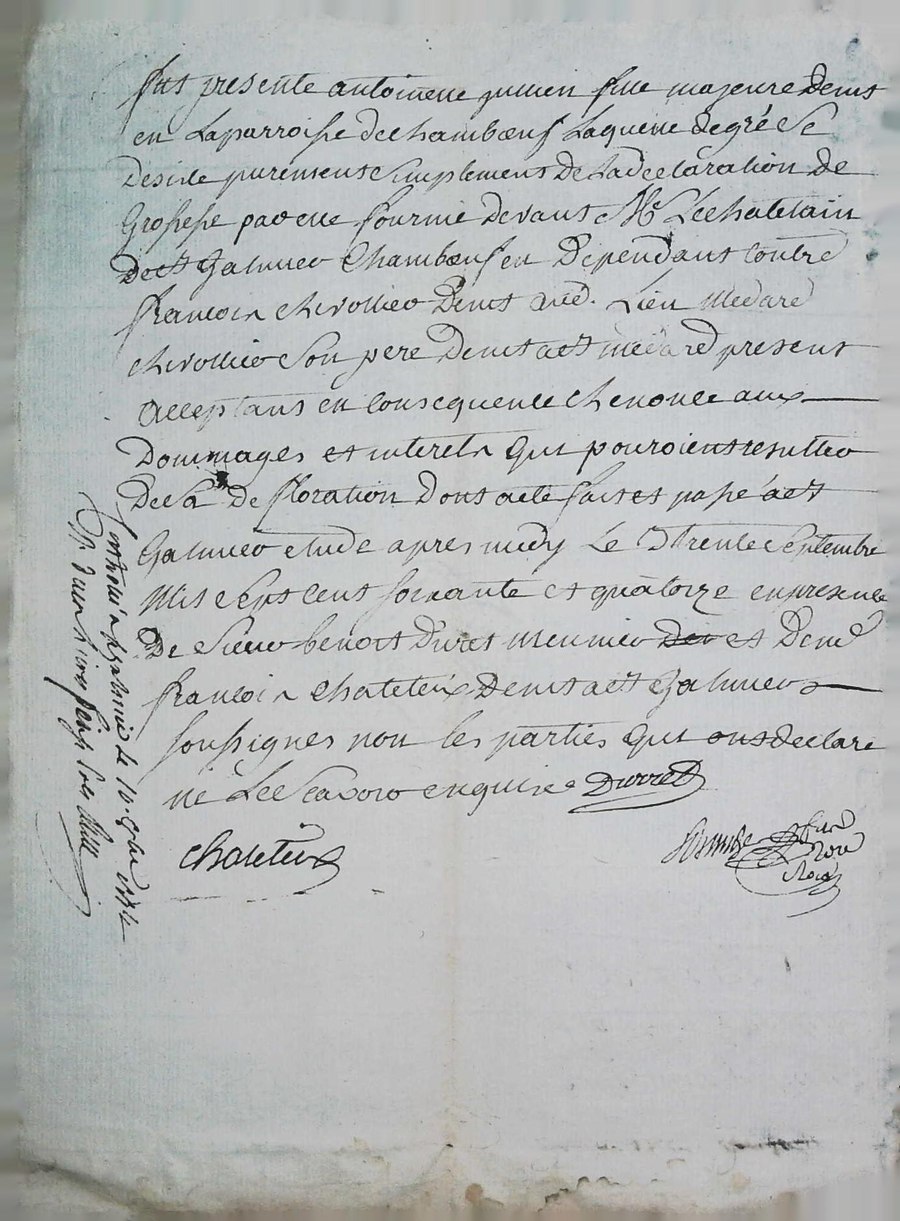 fut presente antoinette jullien fille majeure Demt
en Laparroisse dechambœuf Laquelle degré Se
Desiste purement et Simplement de La declaration De
Grossesse par elle fournie devant Mr Lechatelain
De st Galmier Chambœuf en Dependant Contre
francois chirollier Demt aud. Lieu Medard
chirollier Son pere Demt a st medard present
acceptans en Consequence Renonce aux
Dommages et interets Qui pouroient resulter
De La De floration Dont acte fait et passé a st
Galmier etude apres midy Le trente Septembre
Mil Sept Cent soixante et quatorze en presence
De Sieur benoit Durret Meunier et De me
francois Chatelus Demt a st Galmier
soussignes non les parties Qui ont declaré
ne Le Scavoir enquises Durret
chatelus
Notre
Roial
Controllé a st galmier le 10 8bre 1774